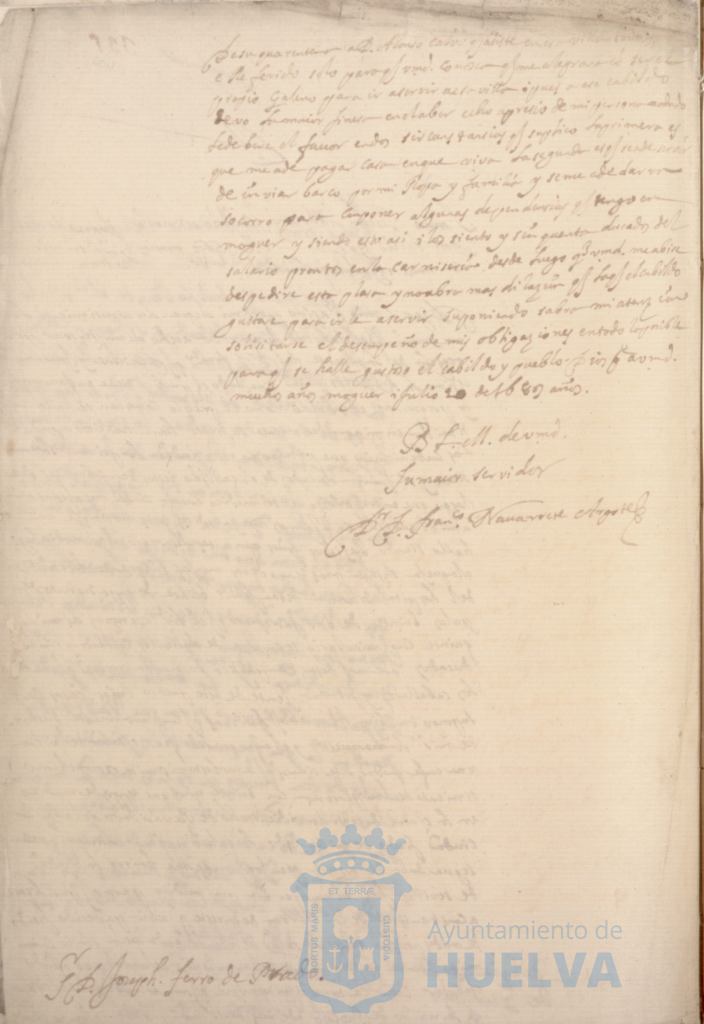 a D. Alonso
e Referido solo para q vmd. conosca q me
propio Galeno para ir a servir a esa villa i pues a ese cabildo
devo la maior finesa en aber echo apresio de mi persona
e debere el favor en dos sircunstansias q suplico la primera es
que me an de pagar casa en que viva la segunda es q se a de
de inviar barco por mi Ropa y familia y se me a de dar un
socorro para componer algunas dependensias q tengo en
moguer y siendo esto asi i los siento y sinquenta ducados del
salario prontos en la carniseria desde luego q vmd. me abise
despedire esta plasa y no abra mas dilazion q la q el cabildo
gustare para irle a servir suponiendo sabra mi atenz con
solisitarse el desempeño de mis obligaziones en todo lo posible
para q se halle gustoso el cabildo y pueblo a vmd.
muchos años moguer i julio 20 de 168 años.
B L. M. de vmd.
Su maior servidor
D. Fran.co Navarrete Argote
Sr. D. Joseph. ferro de Prado.
ET TERRÆ
PORTUS MARIS
CUSTODIA
Ayuntamiento de
HUELVA